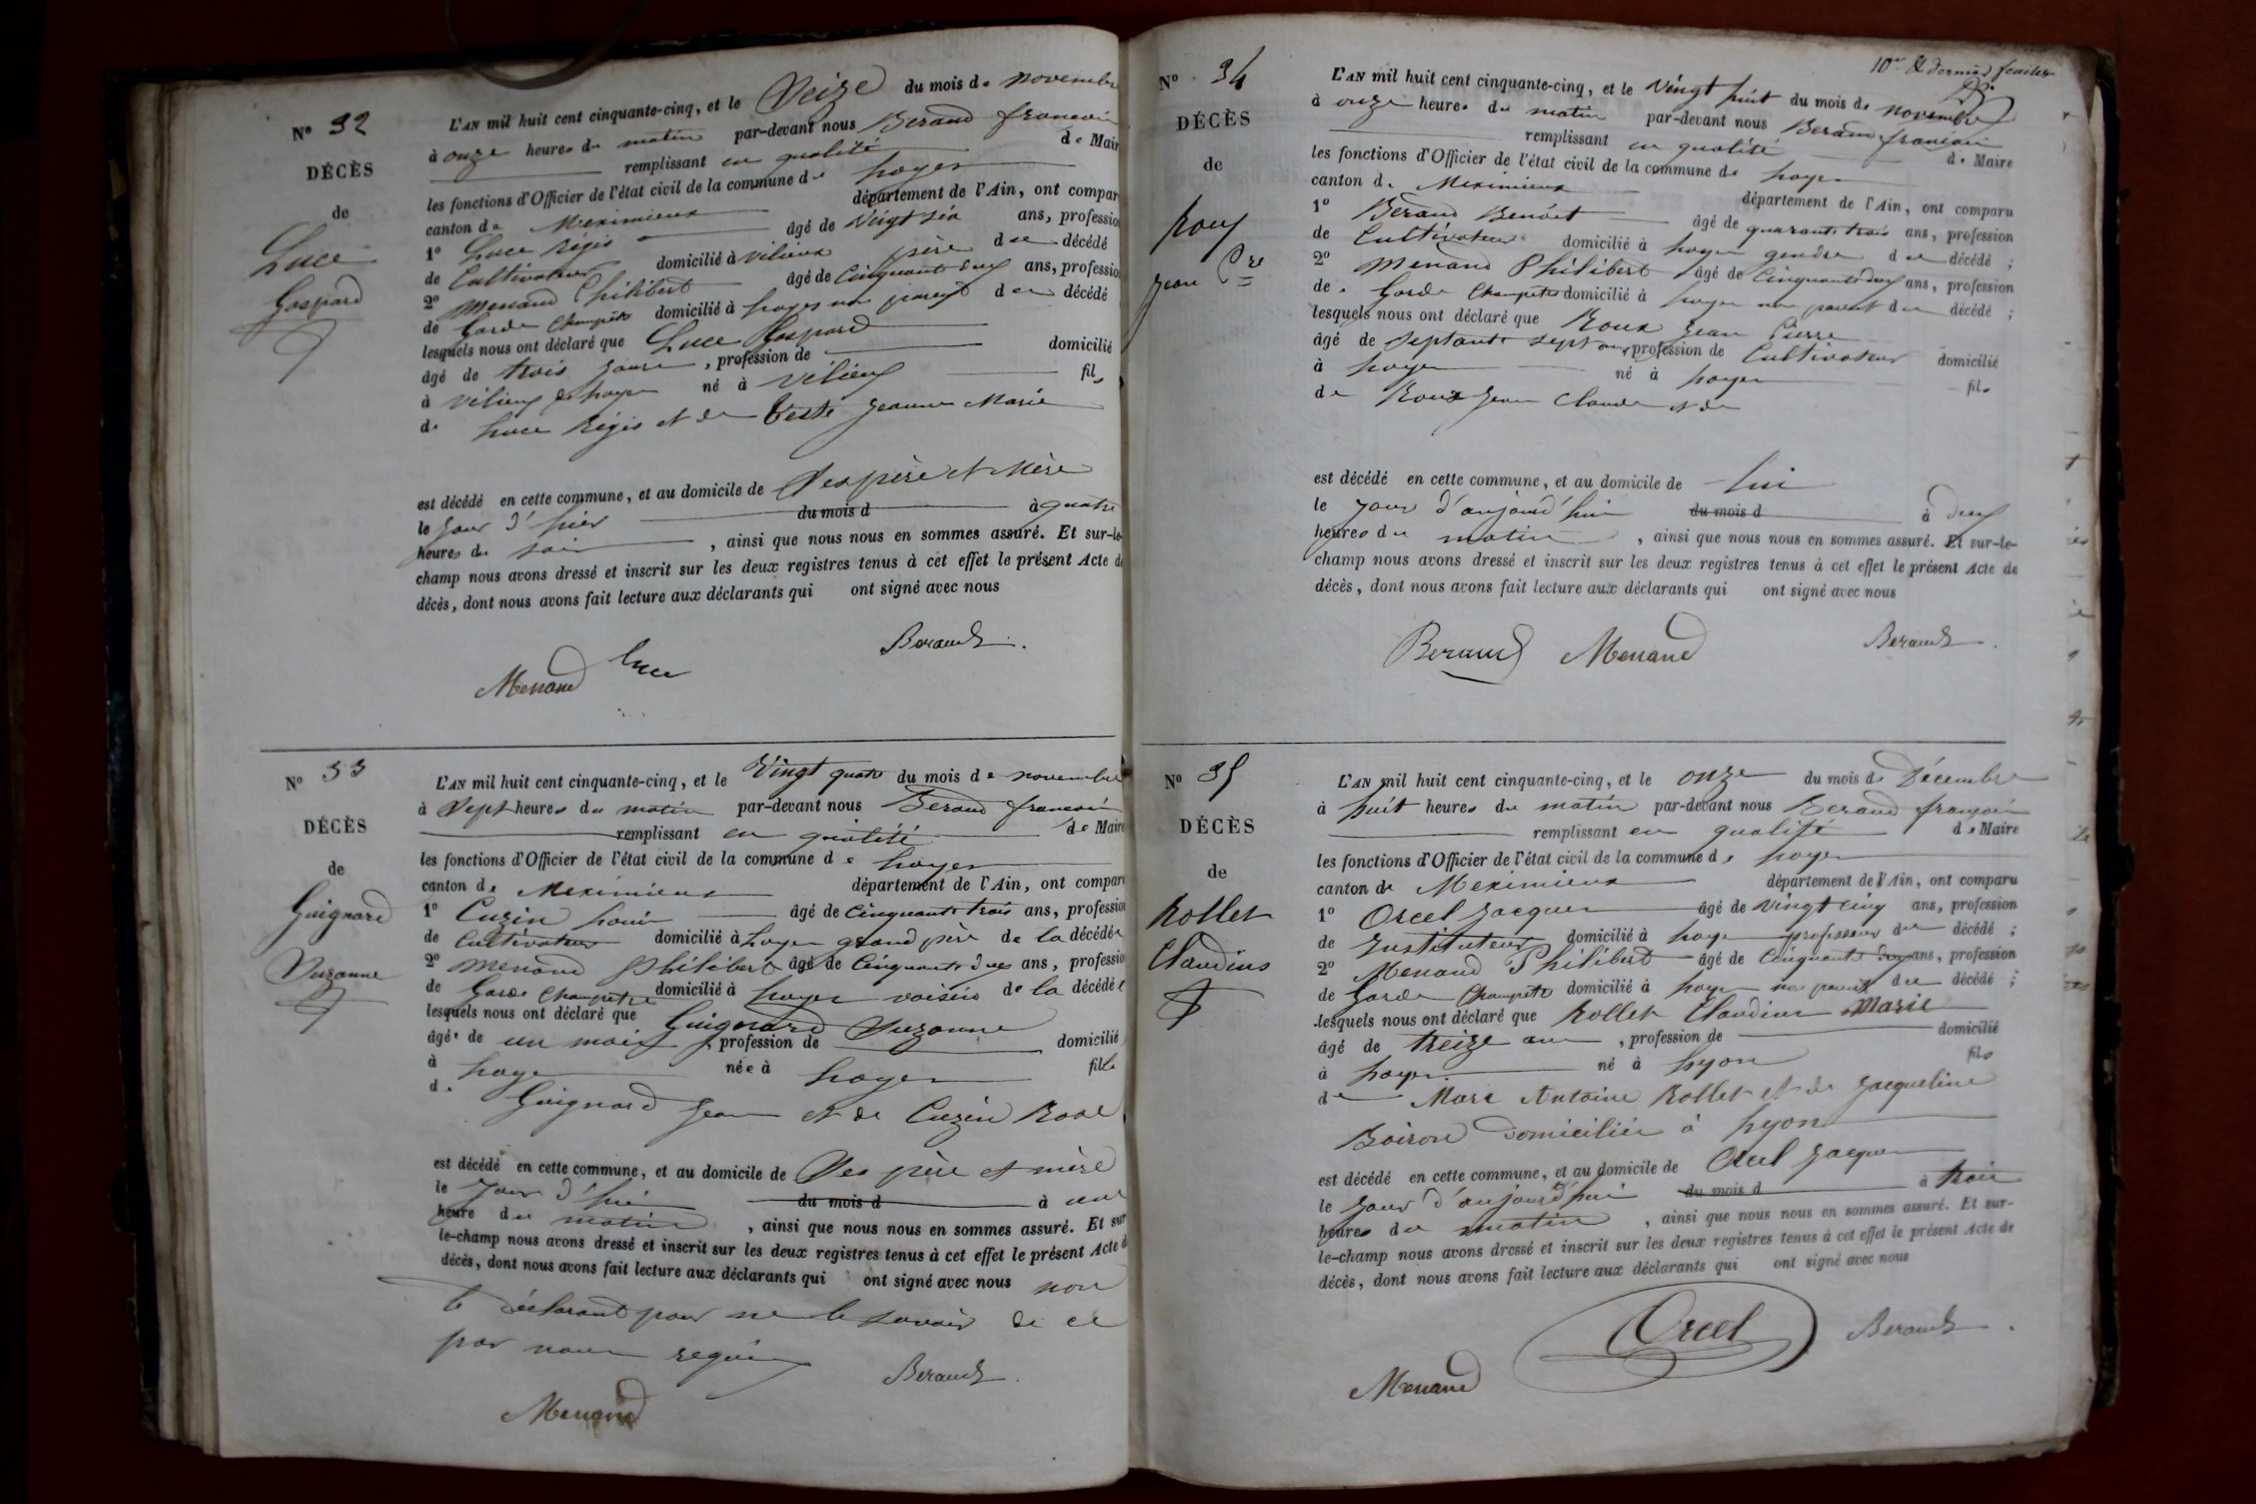 N° 32
DÉCÈS
de
Luce
Gaspard
L'AN mil huit cent cinquante-cinq, et le Seize du mois de novembre
à onze heures du matin par-devant nous Beraud françois
remplissant en qualité de Maire
les fonctions d'Officier de l'état civil de la commune de Loyes
canton de Meximieux département de l'Ain, ont comparu
1° Luce Régis âgé de Vingt six ans, profession
de Cultivateur domicilié à Vilieux père du décédé
2° Menand Philibert âgé de Cinquante deux ans, profession
de Garde Champêtre domicilié à Loyes non parent du décédé
lesquels nous ont déclaré que Luce Gaspard
âgé de trois jours, profession de domicilié
à Vilieux Loyes né à Vilieux fils
de Luce Régis et de Teste Jeanne Marie
est décédé en cette commune, et au domicile de Ses père et Mère
le jour d'hier du mois d à quatre
heures du soir, ainsi que nous nous en sommes assuré. Et sur-le-
champ nous avons dressé et inscrit sur les deux registres tenus à cet effet le présent Acte de
décès, dont nous avons fait lecture aux déclarants qui ont signé avec nous
Menand Luce Beraud
N° 33
DÉCÈS
de
Guignard
Suzanne
L'AN mil huit cent cinquante-cinq, et le Vingt quatre du mois de novembre
à Sept heures du matin par-devant nous Beraud françois
remplissant en qualité de Maire
les fonctions d'Officier de l'état civil de la commune de Loyes
canton de Meximieux département de l'Ain, ont comparu
1° Cuzin Louis âgé de Cinquante trois ans, profession
de Cultivateur domicilié à Loyes grand père de la décédée
2° Menand Philibert âgé de Cinquante deux ans, profession
de Garde Champêtre domicilié à Loyes voisin de la décédée
lesquels nous ont déclaré que Guignard Suzanne
âgée de un mois, profession de domicilié
à Loyes née à Loyes fille
de Guignard Jean et de Cuzin Rose
est décédé en cette commune, et au domicile de Ses père et mère
le jour d'hier du mois d à une
heure du matin, ainsi que nous nous en sommes assuré. Et sur-
le-champ nous avons dressé et inscrit sur les deux registres tenus à cet effet le présent Acte de
décès, dont nous avons fait lecture aux déclarants qui ont signé avec nous non
le déclarant pour ne le savoir de ce
par nous requis
Beraud
Menand
10me & dernier feuillet
N° 34
DÉCÈS
de
Roux
Jean Pre
L'AN mil huit cent cinquante-cinq, et le Vingt huit du mois de novembre
à onze heures du matin par-devant nous Beraud françois
remplissant en qualité de Maire
les fonctions d'Officier de l'état civil de la commune de Loyes
canton de Meximieux département de l'Ain, ont comparu
1° Beraud Benoit âgé de quarante trois ans, profession
de Cultivateur domicilié à Loyes gendre du décédé ;
2° Menand Philibert âgé de Cinquante deux ans, profession
de Garde Champêtre domicilié à Loyes non parent du décédé ;
lesquels nous ont déclaré que Roux Jean Pierre
âgé de septante sept ans, profession de Cultivateur domicilié
à Loyes né à Loyes fils
de Roux Jean Claude et de
est décédé en cette commune, et au domicile de lui
le jour d'aujourd'hui du mois d à deux
heures du matin, ainsi que nous nous en sommes assuré. Et sur-le-
champ nous avons dressé et inscrit sur les deux registres tenus à cet effet le présent Acte de
décès, dont nous avons fait lecture aux déclarants qui ont signé avec nous
Beraud Menand Beraud
N° 35
DÉCÈS
de
Rollet
Claudius
L'AN mil huit cent cinquante-cinq, et le onze du mois de Décembre
à huit heures du matin par-devant nous Beraud françois
remplissant en qualité de Maire
les fonctions d'Officier de l'état civil de la commune de Loyes
canton de Meximieux département de l'Ain, ont comparu
1° Orcel Jacques âgé de vingt cinq ans, profession
de Instituteur domicilié à Loyes professeur du décédé ;
2° Menand Philibert âgé de Cinquante deux ans, profession
de Garde Champêtre domicilié à Loyes non parent du décédé ;
lesquels nous ont déclaré que Rollet Claudius Marie
âgé de treize ans, profession de domicilié
à Loyes né à Lyon fils
de Marc Antoine Rollet et de Jacqueline
Boiron domiciliés à Lyon
est décédé en cette commune, et au domicile de Orcel Jacques
le jour d'aujourd'hui du mois d à trois
heures du matin, ainsi que nous nous en sommes assuré. Et sur-
le-champ nous avons dressé et inscrit sur les deux registres tenus à cet effet le présent Acte de
décès, dont nous avons fait lecture aux déclarants qui ont signé avec nous
Orcel Beraud
Menand